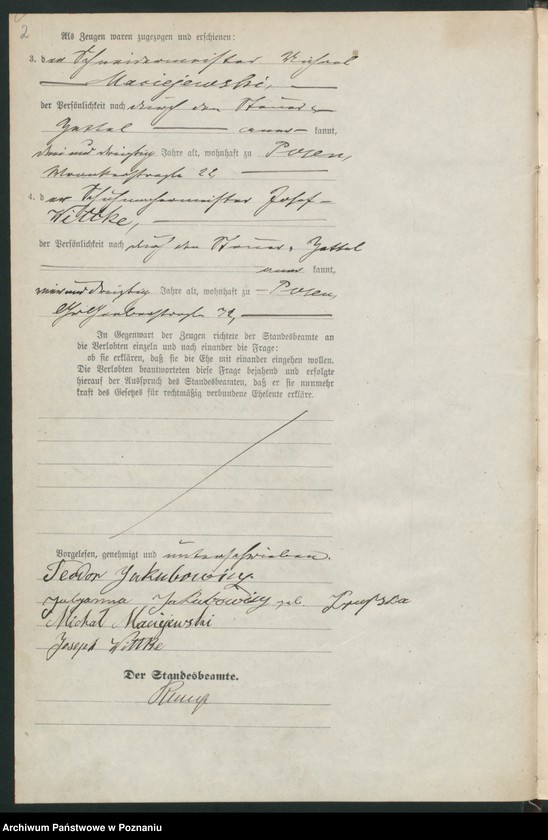 2
Als Zeugen waren zugezogen und erschienen:
3. der Schneidermeister Michael
Maciejewski,
der Persönlichkeit nach durch den Steuer-
Zettel anerkannt,
drei und dreißig Jahre alt, wohnhaft zu Posen,
Wronkerstraße 22
4. der Schuhmachermeister Josef
Wittke,
der Persönlichkeit nach durch den Steuer-Zettel
anerkannt,
und dreißig Jahre alt, wohnhaft zu Posen,
In Gegenwart der Zeugen richtete der Standesbeamte an
die Verlobten einzeln und nach einander die Frage:
ob sie erklären, daß sie die Ehe mit einander eingehen wollen.
Die Verlobten beantworteten diese Frage bejahend und erfolgte
hierauf der Ausspruch des Standesbeamten, daß er sie nunmehr
kraft des Gesetzes für rechtmäßig verbundene Eheleute erkläre.
Vorgelesen, genehmigt und unterschrieben.
Teodor Jakubowicz.
Julyanna Jakubowicz geb.
Michal Maciejewski
Joseph Wittke
Der Standesbeamte.
Archiwum Państwowe w Poznaniu